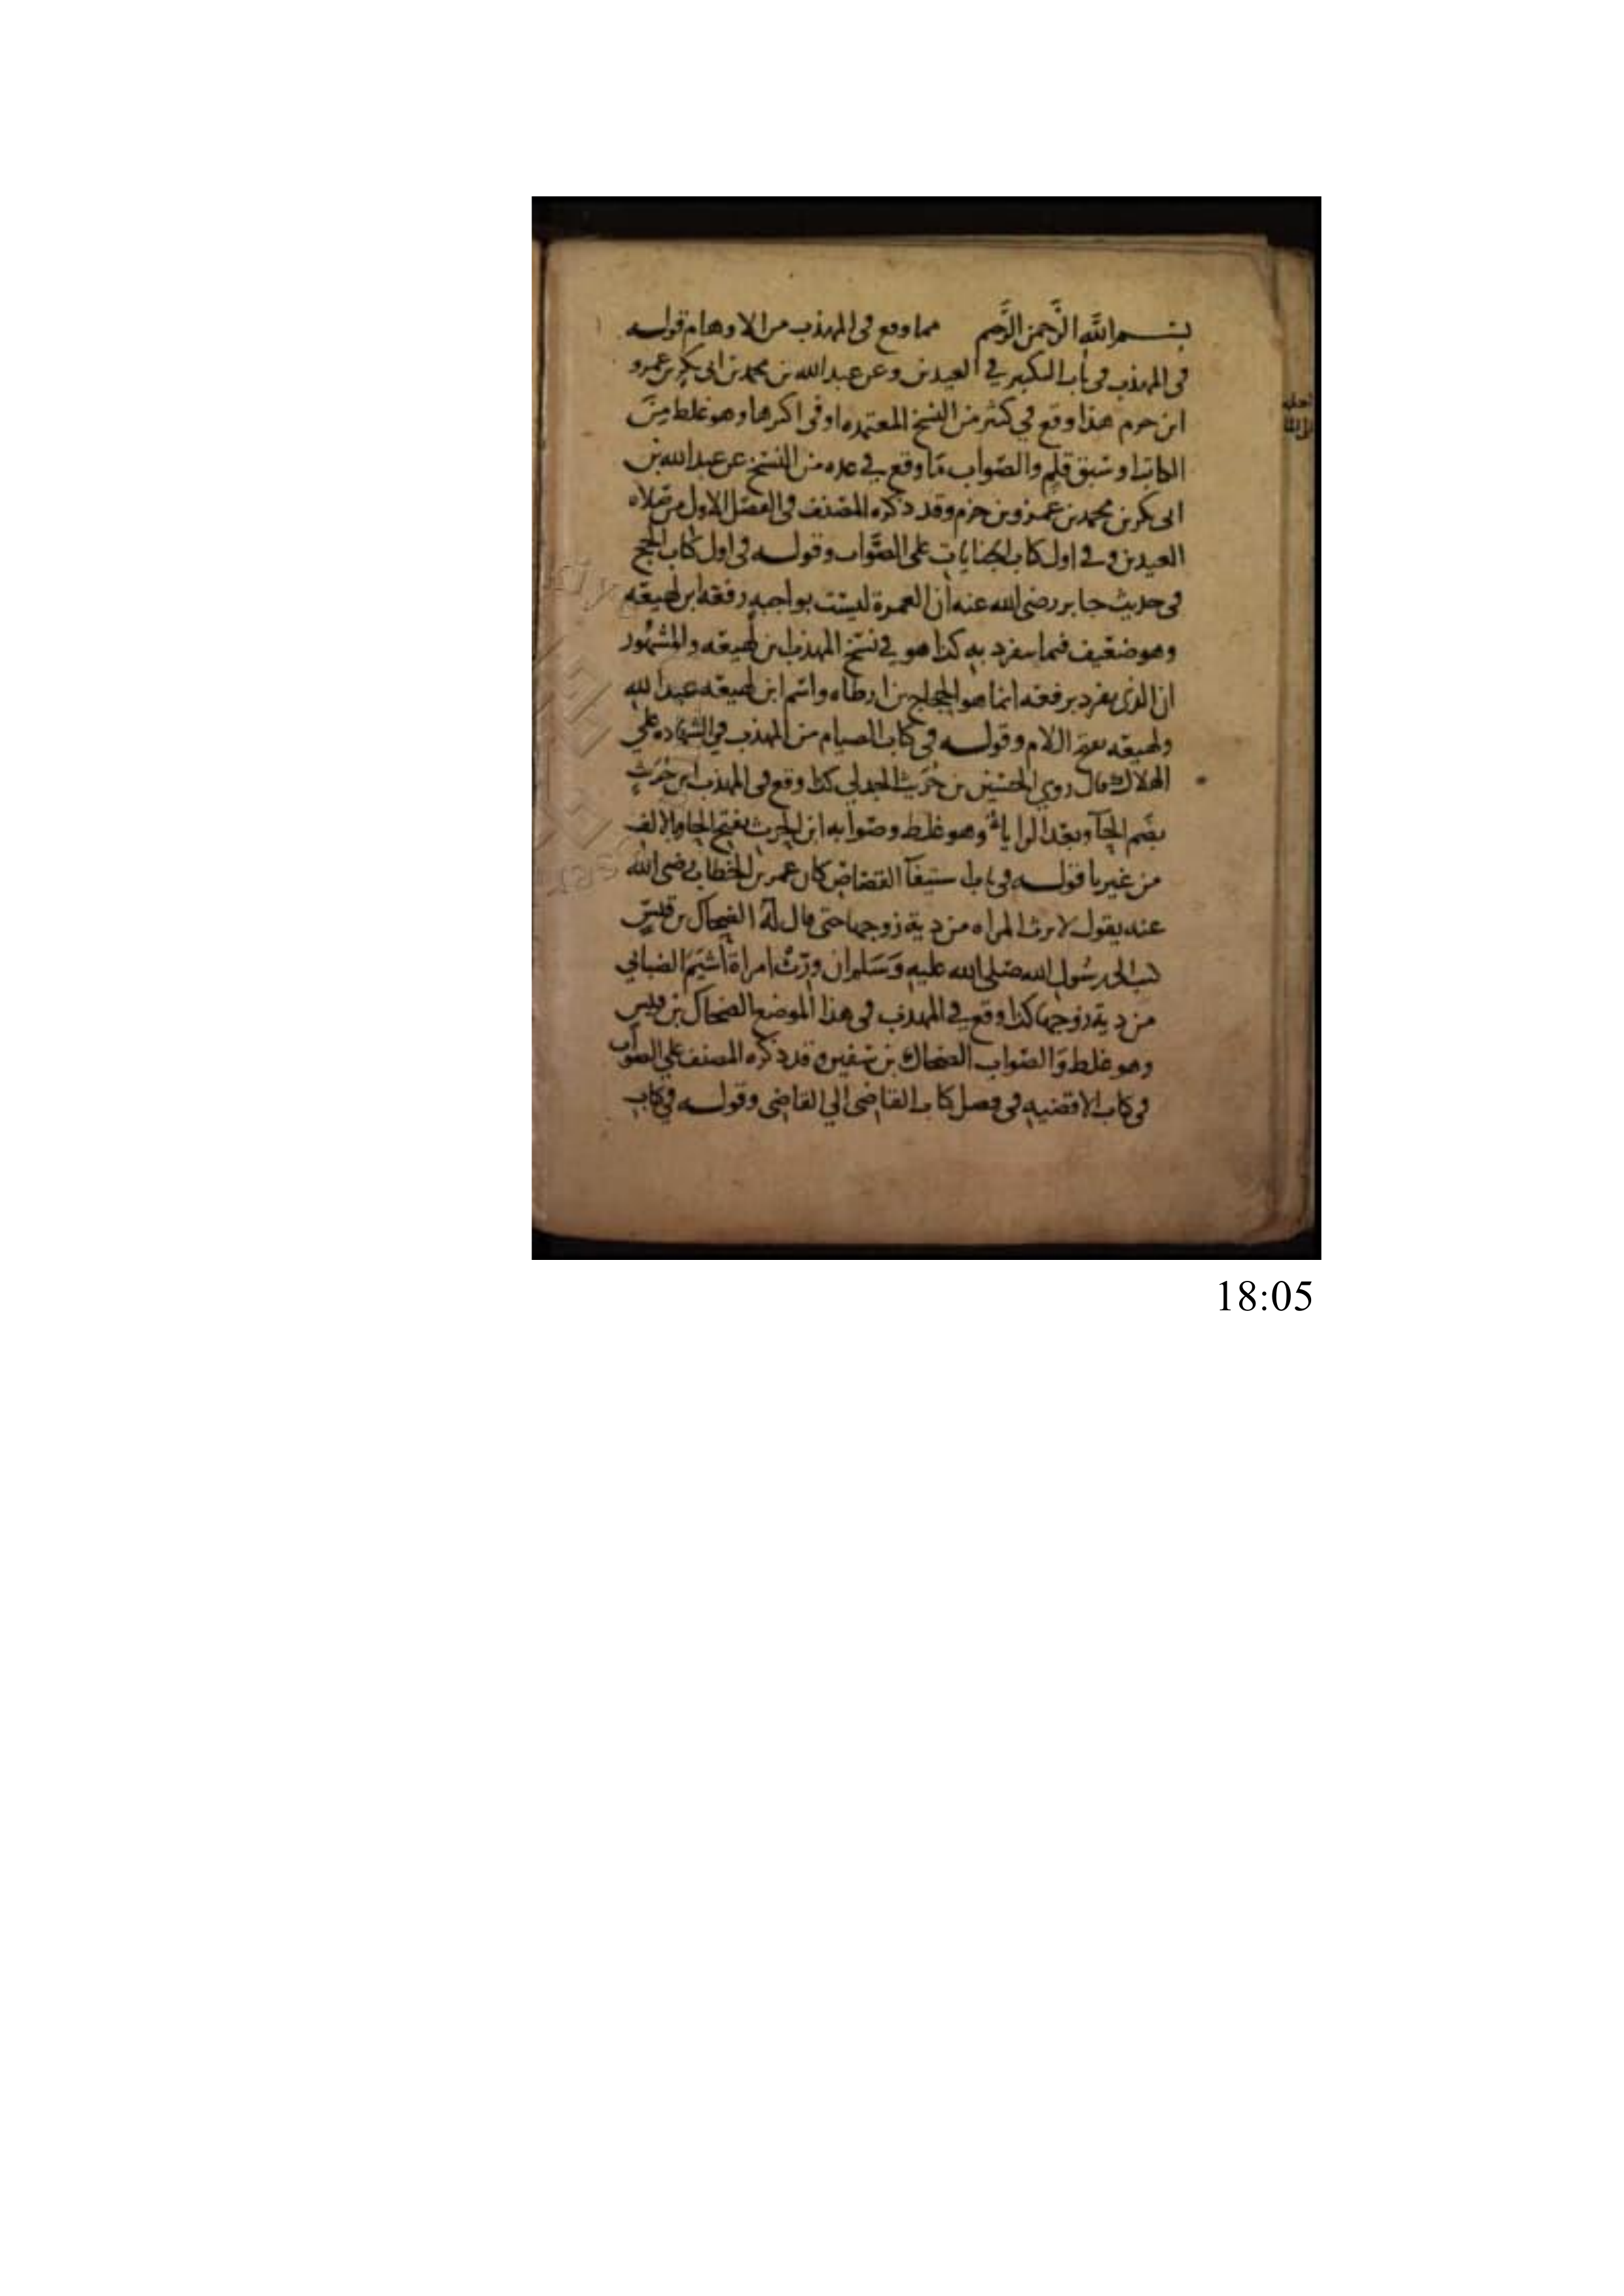 بسم الله الرحمن الرحيم مما وقع في المهذب من الاوهام قوله
في المهذب في باب التكبير في العيدين وعن عبد الله بن محمد بن ابي بكر بن عمرو
ابن حزم هذا وقع في كثير من النسخ المعتمده او في اكثرها وهو غلط من
الكاتب او سبق قلم والصواب ما وقع في عده من النسخ عن عبد الله بن
ابي بكر بن محمد بن عمرو بن حزم وقد ذكره المصنف في الفصل الاول من صلاه
العيدين وفي اول كتاب الجنايات على الصواب وقوله في اول كتاب الحج
في حديث جابر رضي الله عنه ان العمرة ليست بواجبه رفعه ابن لهيعه
وهو ضعيف فيما ينفرد به كذا هو في نسخ المهذب ابن لهيعه والمشهور
ان الذي يفرد برفعه انما هو الحجاج بن ارطاه واسم ابن لهيعه عبد الله
ولهيعه بفتح اللام وقوله في كتاب الصيام من المهذب في الشهاده علي
الهلال قال روي الحسين بن حريث الجدلي كذا وقع في المهذب ابن حريث
بضم الحآ وبعد الرا يا وهو غلط وصوابه ابن الحرث بفتح الحا وبالالف
من غير يا قوله في باب استيفآ القصاص كان عمر بن الخطاب رضي الله
عنه يقول لا ترث المراه من دية زوجها حتى قال له الضحاك بن قيس
كتب الي رسول الله صلى الله عليه وسلم ان ورث امراة اشيم الضبابي
من دية زوجها كذا وقع في المهذب في هذا الموضع الضحاك بن قيس
وهو غلط والصواب الضحاك بن سفين وقد ذكره المصنف علي الصواب
في كتاب الاقضيه في فصل كتاب القاضي الي القاضي وقوله في كتاب
18:05